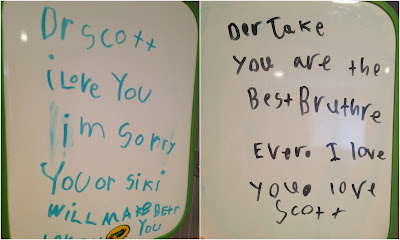 Dr scott
i Love You
i'm sorry
You or siki
WILL MAKE Betr
You
Der Take
You are the
Best Bruthre
Ever. I love
you. love
Scott